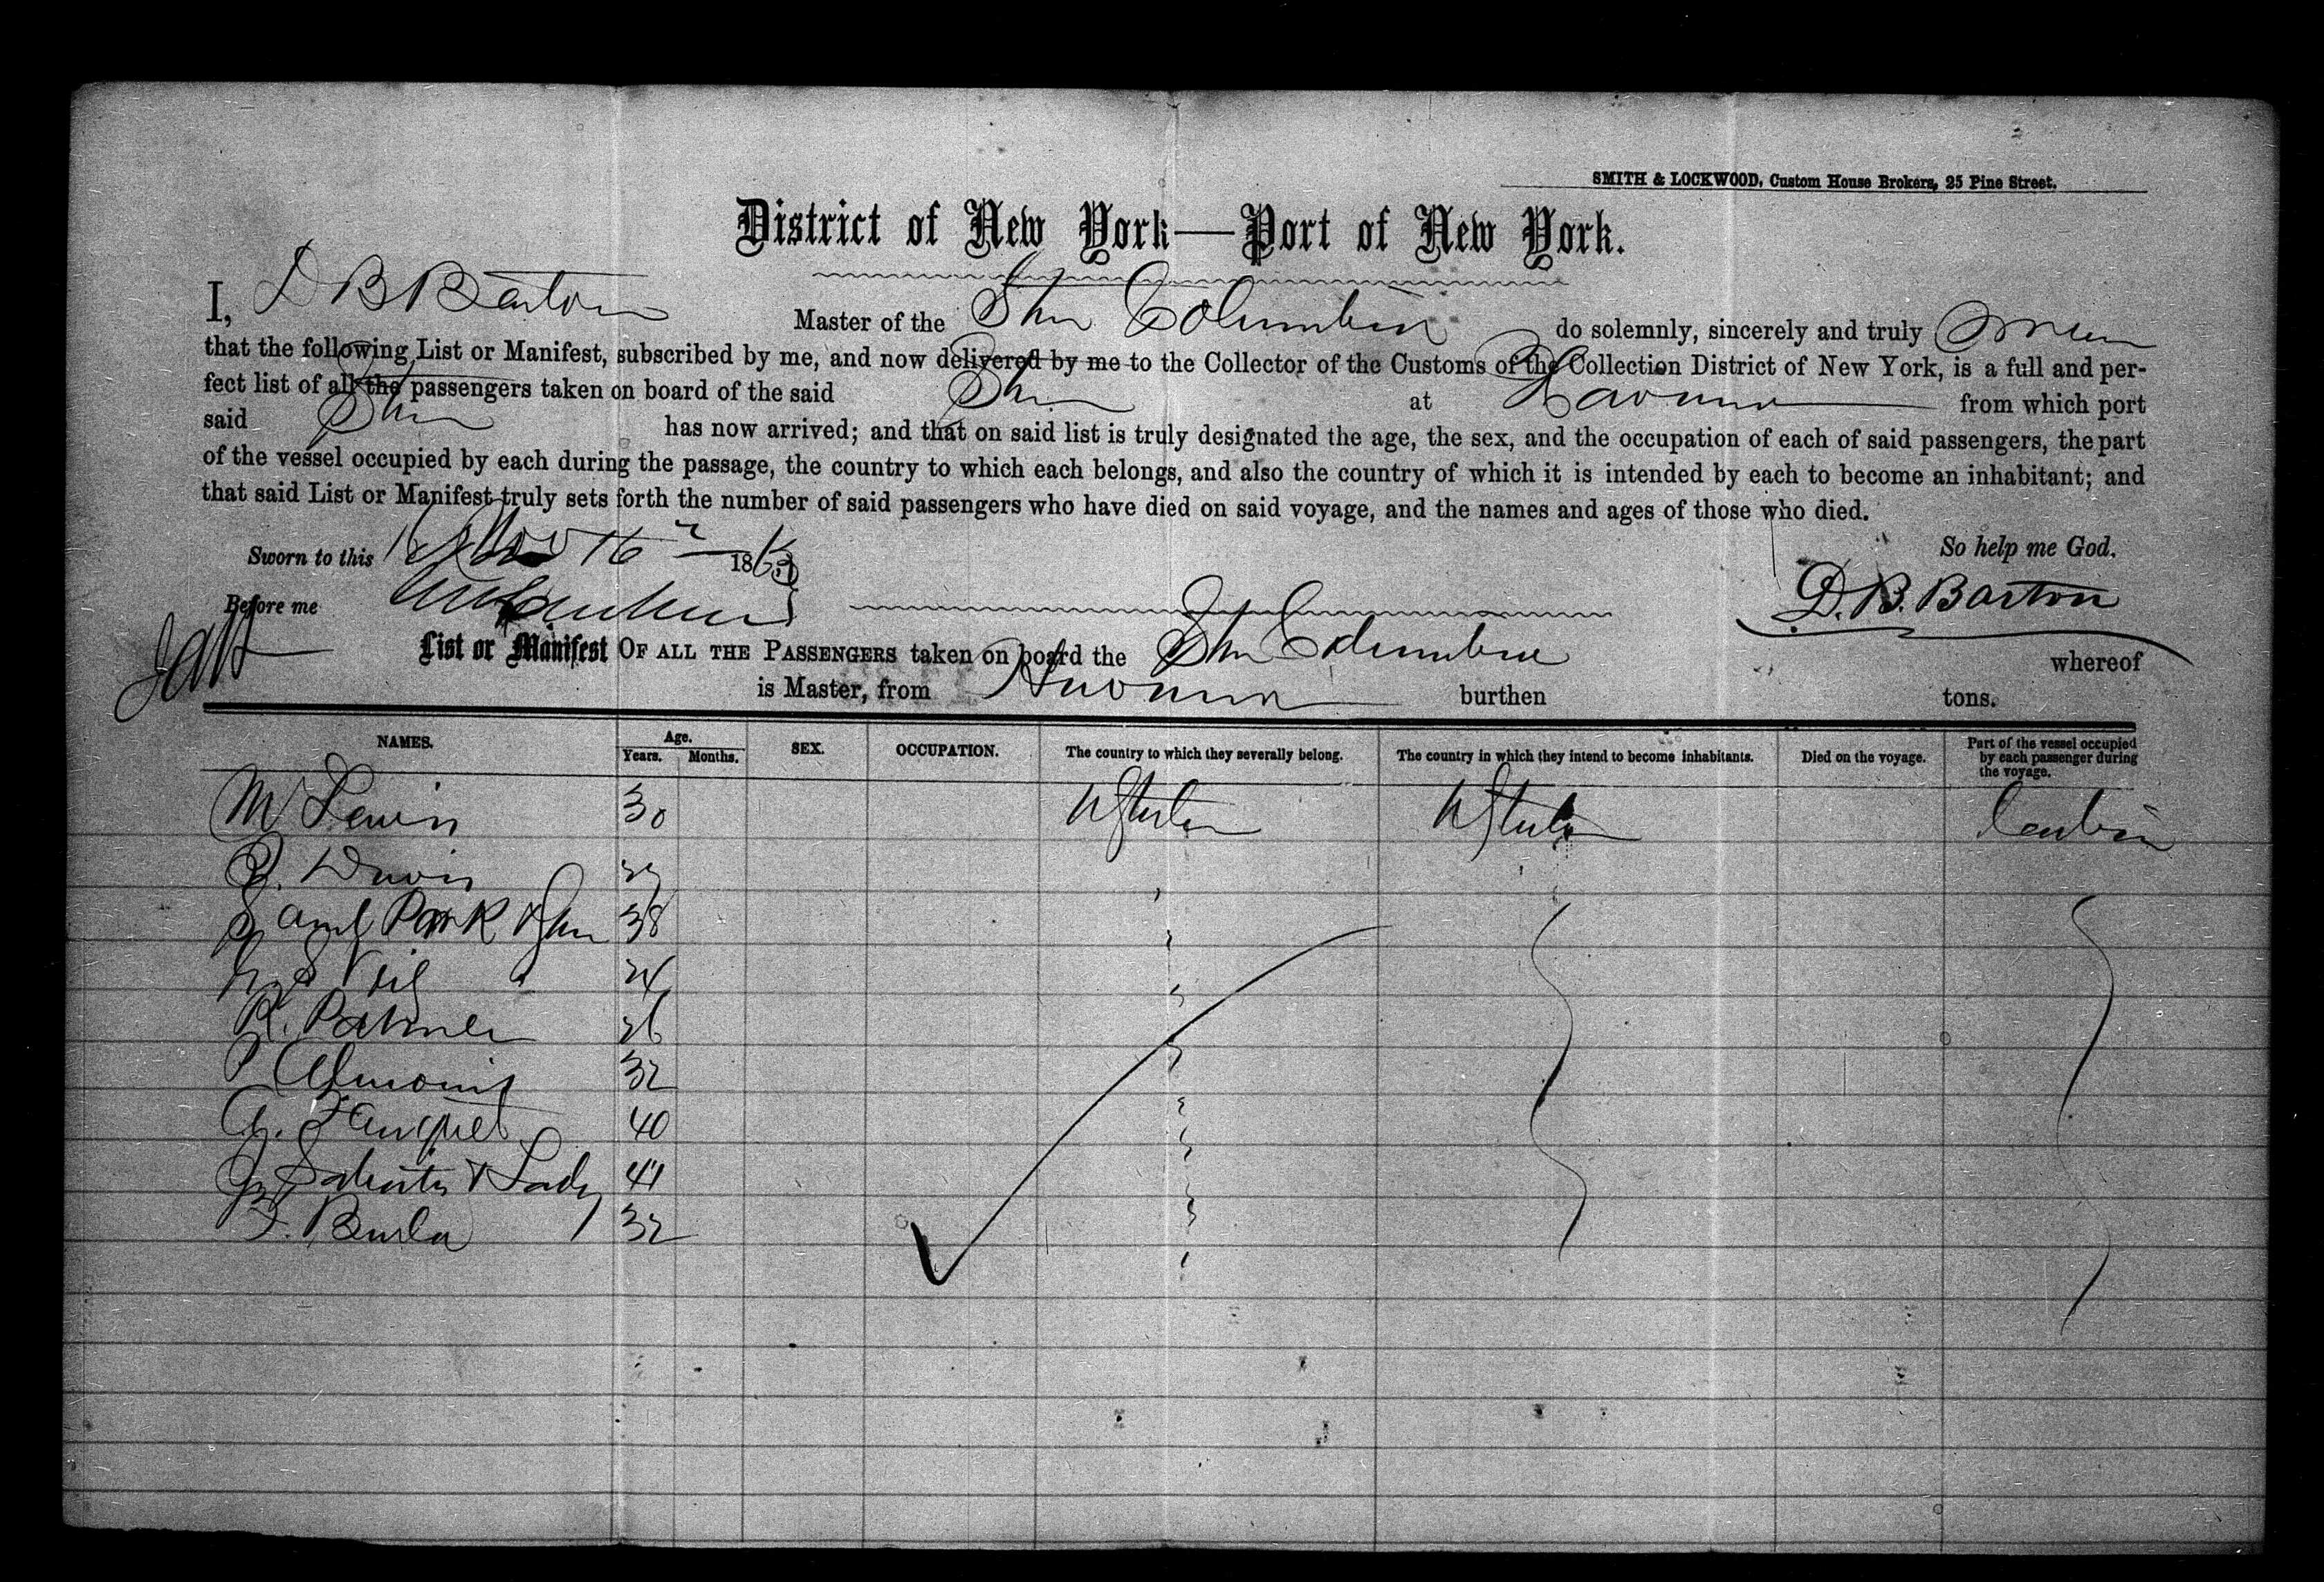 SMITH & LOCKWOOD, Custom House Brokers, 25 Pine Street.
District of New York—Port of New York.
I, D B Barton Master of the Str Columbia do solemnly, sincerely and truly swear
that the following List or Manifest, subscribed by me, and now delivered by me to the Collector of the Customs of the Collection District of New York, is a full and per-
fect list of all the passengers taken on board of the said Str at Havana from which port
said Str has now arrived; and that on said list is truly designated the age, the sex, and the occupation of each of said passengers, the part
of the vessel occupied by each during the passage, the country to which each belongs, and also the country of which it is intended by each to become an inhabitant; and
that said List or Manifest truly sets forth the number of said passengers who have died on said voyage, and the names and ages of those who died.
Sworn to this Nov 16 1863 So help me God.
Before me D. B. Barton
List or Manifest OF ALL THE PASSENGERS taken on board the Str Columbia whereof
is Master, from Havana burthen tons.
NAMES. Age. Years. Months. SEX. OCCUPATION. The country to which they severally belong. The country in which they intend to become inhabitants. Died on the voyage. Part of the vessel occupied by each passenger during the voyage.
M Lewin 30 U States U States Cabin
Davis
Saml Park 38
24
R. Palmer 26
32
A. 40
& Lady 41
F. 32